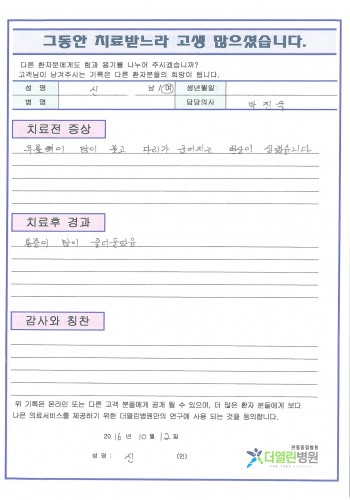 그동안 치료받느라 고생 많으셨습니다.
다른 환자분에게도 힘과 용기를 나누어 주시겠습니까?
고객님이 남겨주시는 기록은 다른 환자분들의 희망이 됩니다.
성 명 신 남/여 생년월일
병 명 담당의사 박진욱
치료전 증상
무릎뼈이 많이 붓고 다리가 굳어지는 현상이 심했습니다
치료후 경과
통증이 많이 줄어들었음
감사와 칭찬
위 기록은 온라인 또는 다른 고객 분들에게 공개 될 수 있으며, 더 많은 환자 분들에게 보다
나은 의료서비스를 제공하기 위한 더열린병원만의 연구에 사용 되는 것을 동의합니다.
2016년 10월 12일
성 명 : 신 (인)
관절중점병원
더열린병원